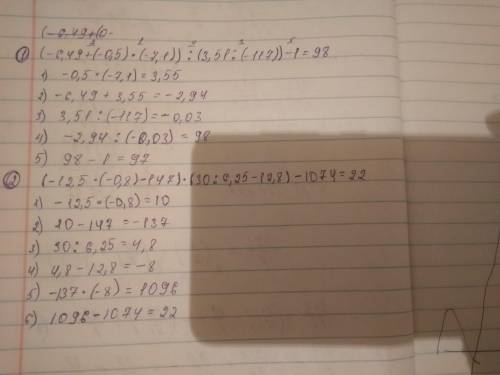 (-6.49+(0-
① (-6,49+(-0,5)·(-7,1)) : (3,51:(-117))-1=98
1) -0,5·(-7,1)=3,55
2) -6,49+3,55=-2,94
3) 3,51:(-117)=-0,03
4) -2,94:(-0,03)=98
5) 98-1=97
② (-12,5·(-0,8)-147)·(30:6,25-12,8)-1074=22
1) -12,5·(-0,8)=10
2) 10-147=-137
3) 30:6,25=4,8
4) 4,8-12,8=-8
5) -137·(-8)=1096
6) 1096-1074=22